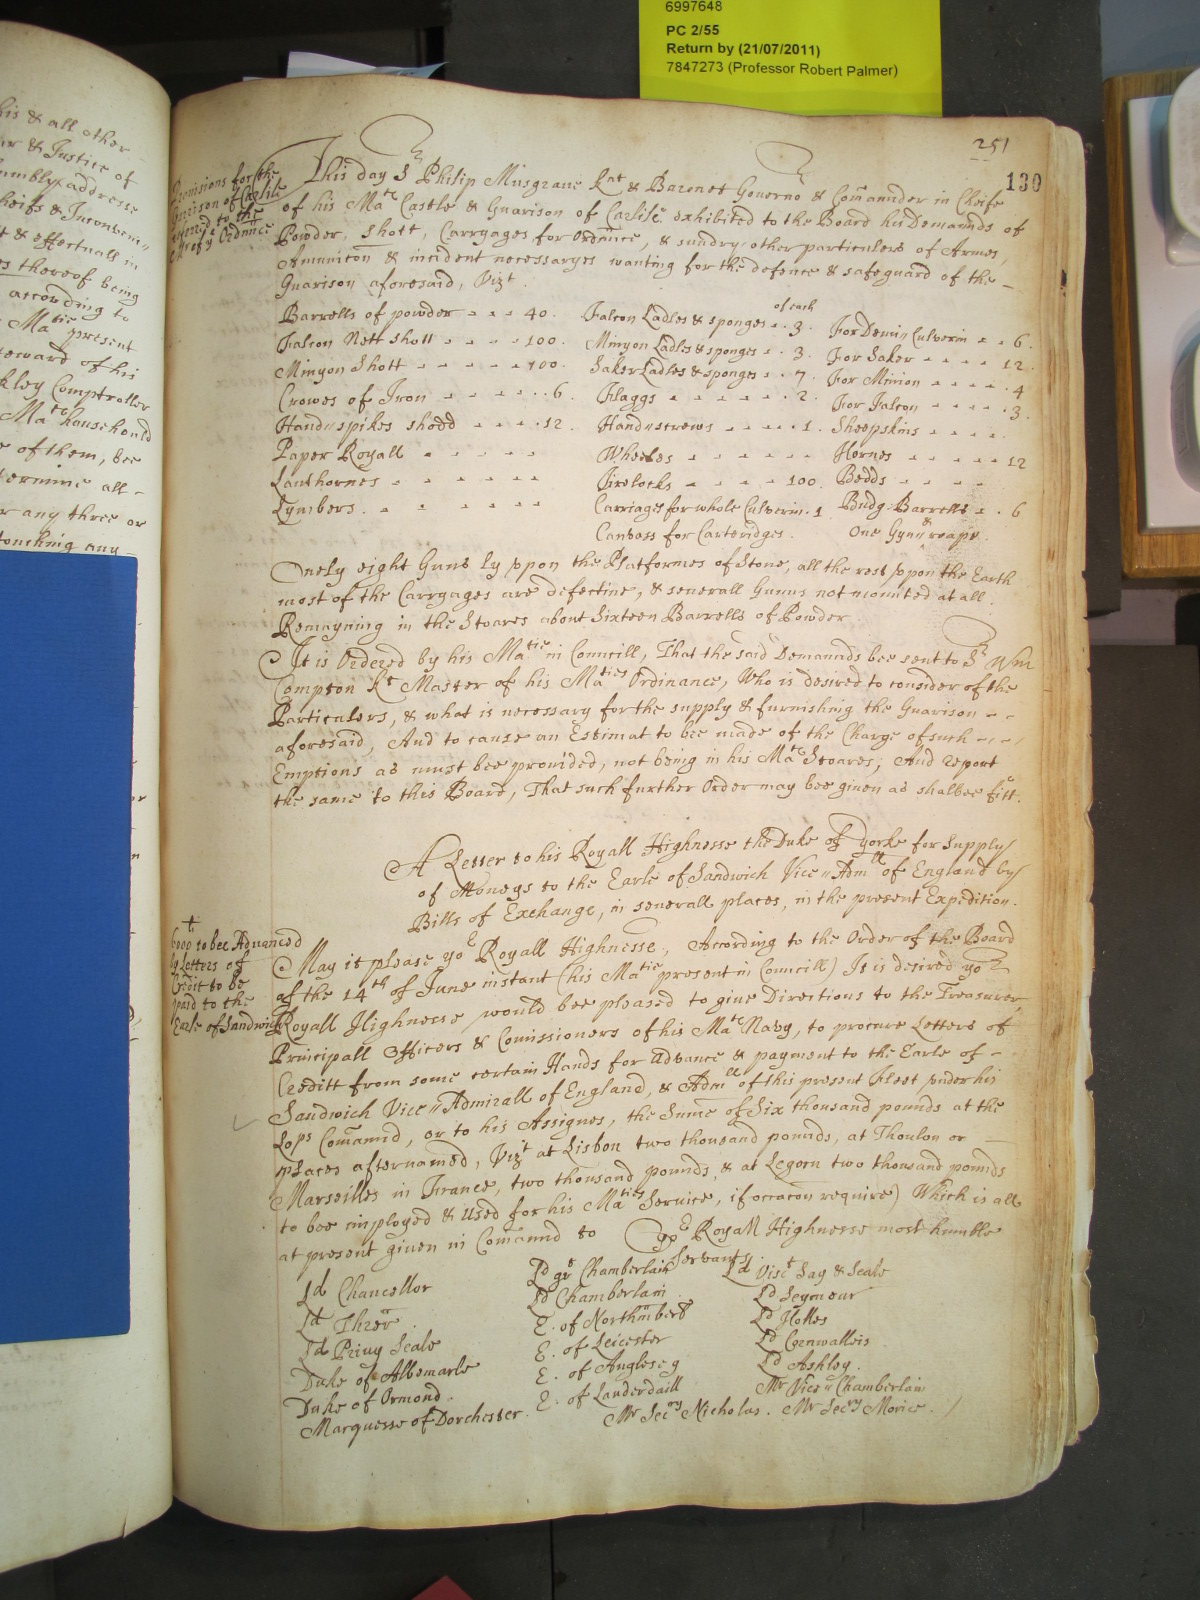 6997648
PC 2/55
Return by (21/07/2011)
7847273 (Professor Robert Palmer)
his & all other
& Justice of
addresse
& Inconveni"
& effectuall in
thereof being
according to
Matie present
steward of his
Comptroller
Mats household
of them, bee
termine all -
or any three or
touching any -
251
130
Provisions for the
Garrison of Carlile
referred to the
Mr of ye Ordnance
This day Sr Philip Musgrave Knt & Baronet Governor & Comander in Cheife
of his Mats Castle & Guarison of Carlile exhibited to the Board his Demannds of
Powder, Shott, Carryages for Ordnance, & sundry other particulers of Armes,
Amunicon & incident necessaryes wanting for the defence & safeguard of the -
Guarison aforesaid, Vizt.
Barrells of powder - - - 40.
Falcon Nett shott - - - - 100.
Minyon Shott - - - - - - 100.
Crowes of Iron - - - - - - 6.
Handyspikes shodd - - - - 12.
Paper Royall - - - - -
Lanthornes - - - - - -
Lymbers. - - - - - -
of each
Falcon Ladles & sponges - . 3.
Minyon Ladles & sponges - . 3.
Saker Ladles & sponges - . 7.
Flaggs - - - - - - . 2.
Handyscrews - - - - - 1.
Wheeles - - - - - - -
Firelocks - - - - - 100.
Carriages for whole Culverin. 1
Canvass for Carteridges.
For Demiy Culverin - - 6.
For Saker - - - - - 12.
For Minion - - - - - 4
For Falcon - - - - - 3.
Sheepskins - - - - .
Hornes - - - - - - 12
Bedds - - - - -
Budg-Barrells - . 6
One Gynn & roape.
Onely eight Guns ly upon the Platformes of Stone, all the rest upon the Earth
most of the Carryages are defective, & severall Gunns not mounted at all.
Remayning in the Stoares about Sixteen Barrells of Powder
It is Ordered by his Matie in Councill, That the said Demannds bee sent to Sr Wm
Compton Kt Master of his Maties Ordinance, Who is desired to consider of the
Particulers, & what is necessary for the supply & furnishing the Guarison - -
aforesaid, And to cause an Estimat to bee made of the Charge of such - - -
Emptions as must bee provided, not being in his Mats Stoares; And report
the same to this Board, That such further Order may bee given as shalbee fitt.
A Letter to his Royall Highnesse the Duke of Yorke for Supply
of Moneys to the Earle of Sandwich Vice" Admll of England by
Bills of Exchange, in severall places, in the present Expedition.
to bee Advanced
by Letters of
Credit to be
paid to the
Earle of Sandwich
May it please yor Royall Highnesse, According to the Order of the Board
of the 14th of June instant (his Matie present in Councill) It is desired yor
Royall Highnesse would bee pleased to give Directions to the Treasurer
Principall Officers & Comissioners of his Mats Navy, to procure Letters of
Creditt from some certain Hands for Advance & payment to the Earle of -
Sandwich Vice" Admirall of England, & Admll of this present Fleet under his
Lops Comannd, or to his Assignes, the Sume of Six thousand pounds at the
places afternamed, Vizt at Lisbon two thousand pounds, at Thoulon or -
Marseilles in France, two thousand pounds, & at Legorn two thousand pounds
to bee imployed & Used for his Maties Service, if occacon require) Which is all
at present given in Comannd to Yor Royall Highnesse most humble
Servants.
Ld Chancellor
Ld Threr.
Ld Privy Seale
Duke of Albemarle
Duke of Ormond.
Marquesse of Dorchester.
Ld grt Chamberlain
Ld Chamberlain
E. of Northumberd
E. of Leicester
E. of Anglesey
E. of Lauderdaill
Mr Secry Nicholas.
Ld Visct Say & Seale
Ld Seymour
Ld Holles
Ld Cornwalleis
Ld Ashley.
Mr Vice" Chamberlain
Mr Secry Morice.